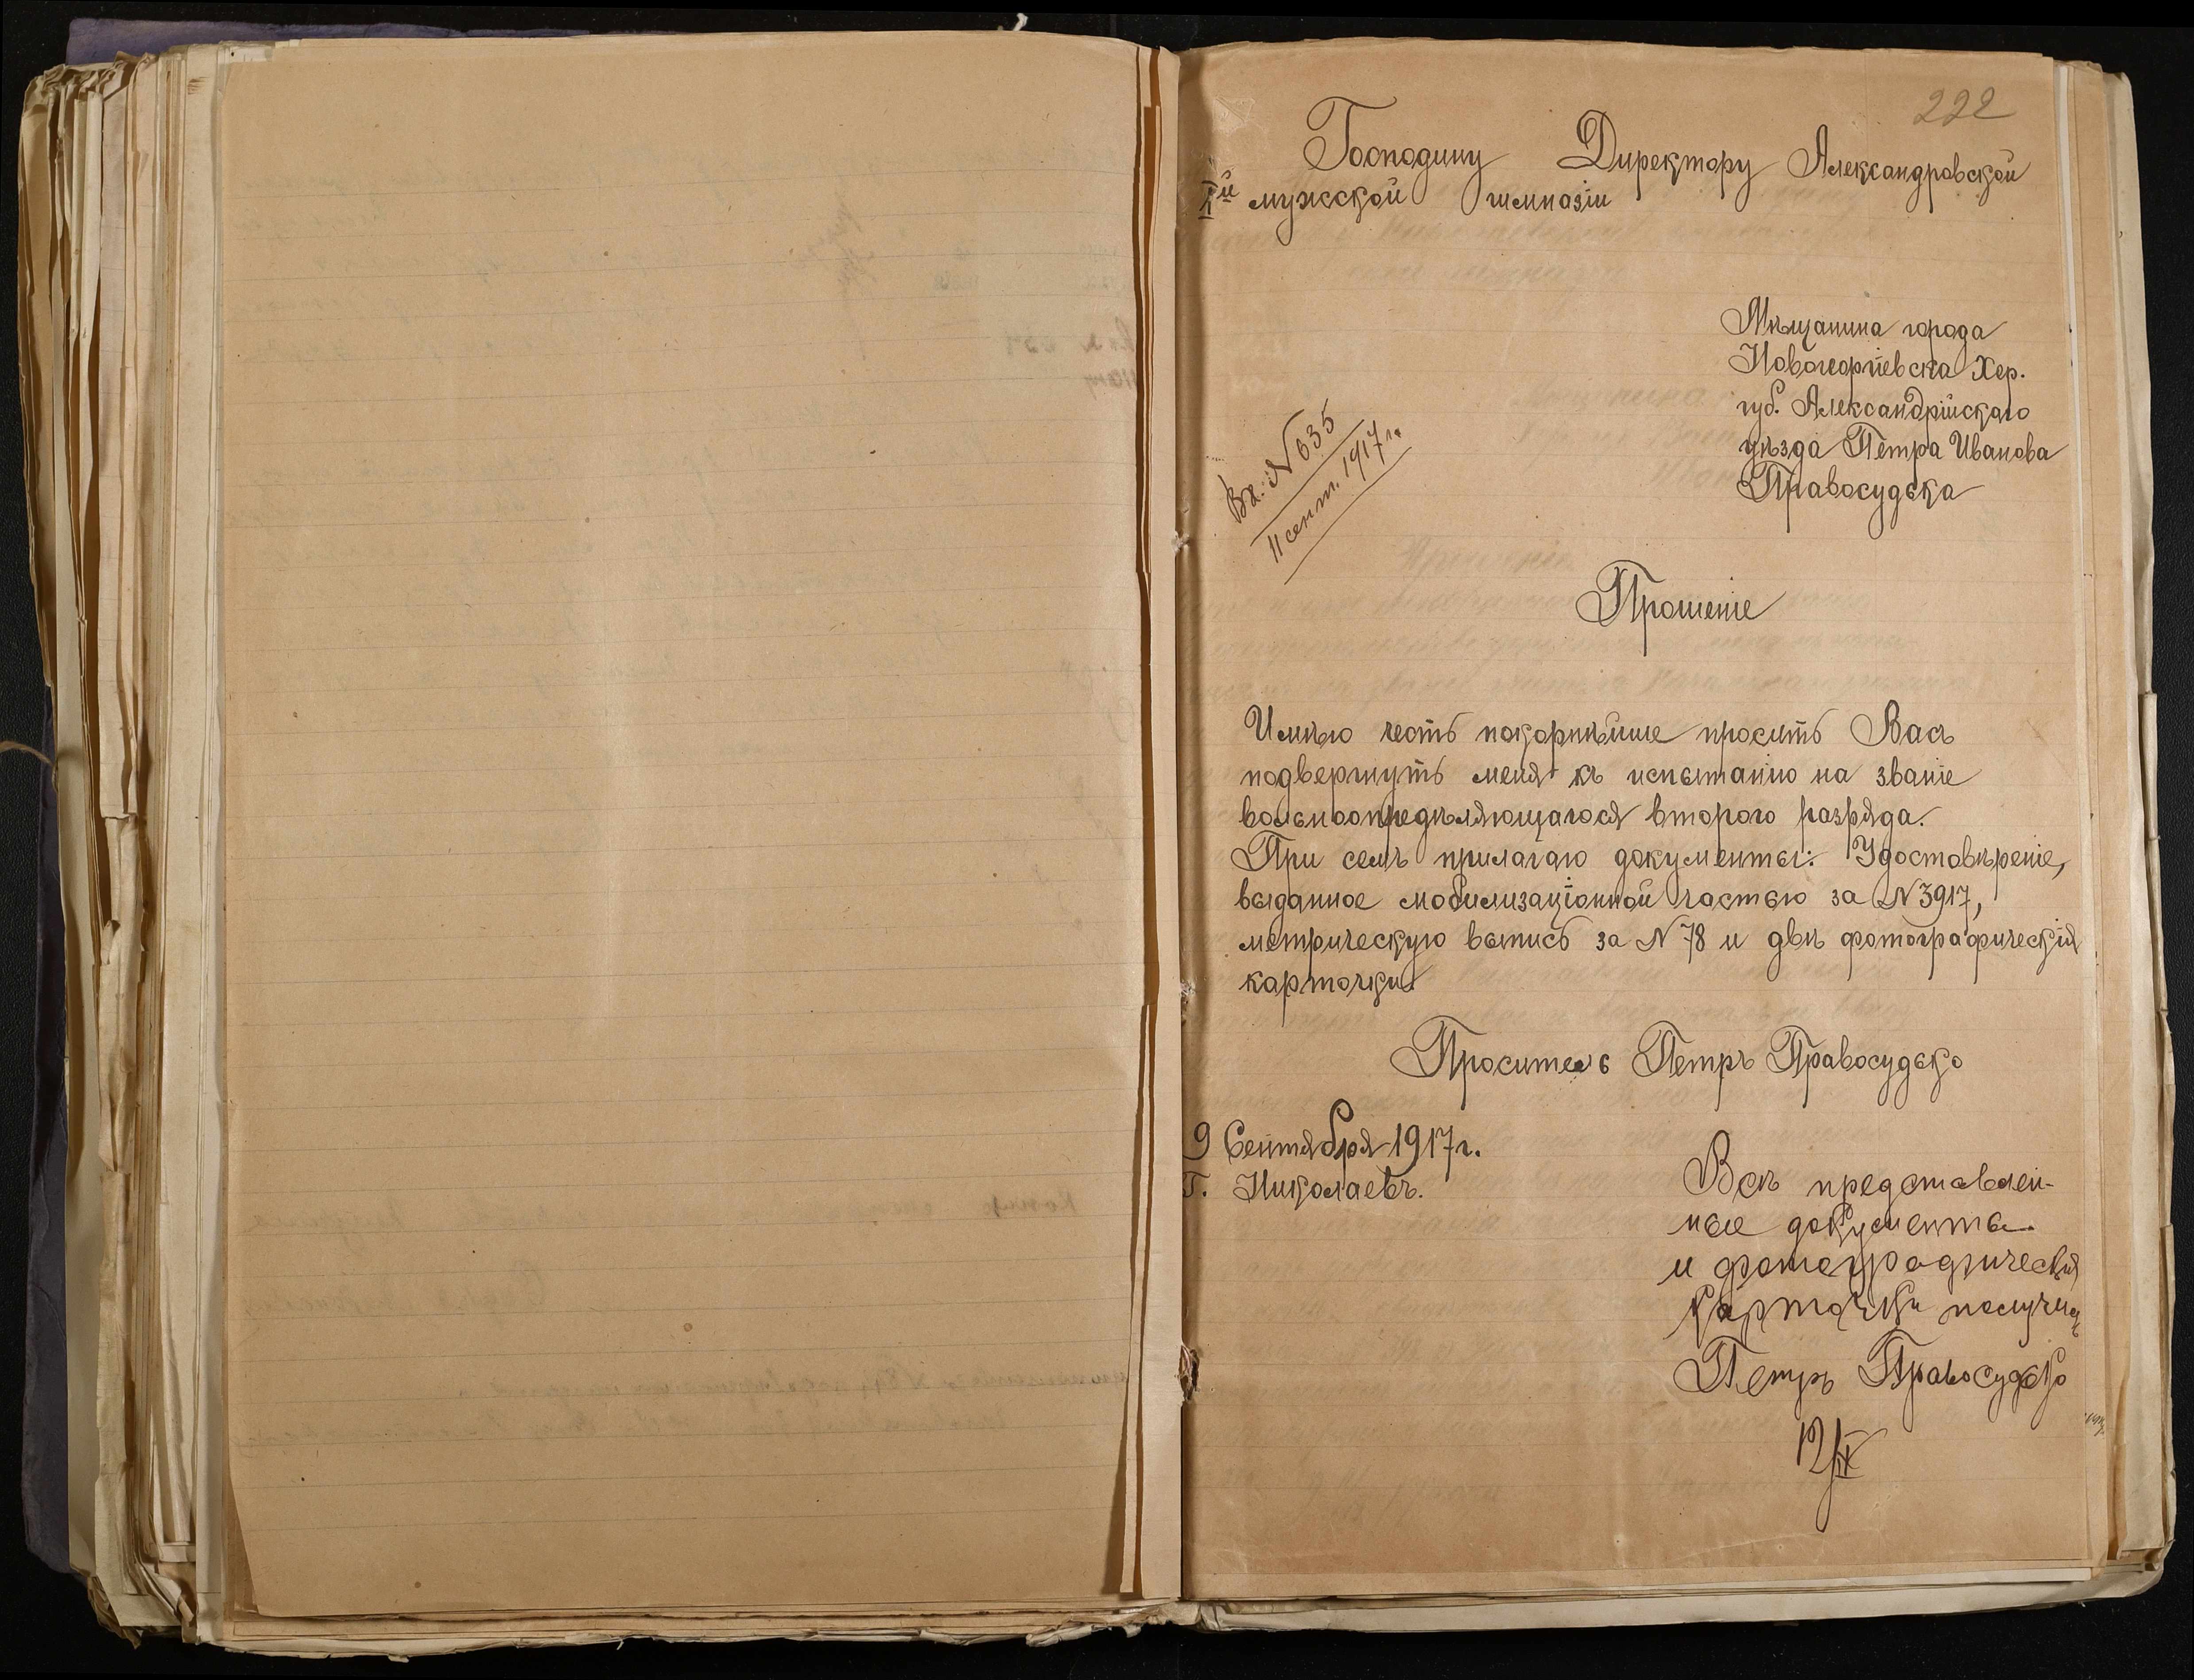 222
Господину Директору Александровской
I й мужской гимназіи
Мѣщанина города
Новогеоргіевска Хер.
губ. Александрійскаго
уѣзда Петра Иванова
Правосудька
Вх. N 635
11 сент. 1917 г.
Прошеніе
Имѣю честь покорнѣйше просить Васъ
подвергнуть меня къ испытанію на званіе
вольноопредѣляющагося второго разряда.
При семъ прилагаю документы: Удостовѣреніе,
выданное мобилизаціонной частью за N 3917,
метрическую выпись за N 78 и двѣ фотографическія
карточки.
Проситель Петръ Правосудько
9 Сентября 1917 г.
Г. Николаевъ.
Всѣ представлен-
ные документы
и фотографическія
карточки получилъ
Петръ Правосудько
12/IX